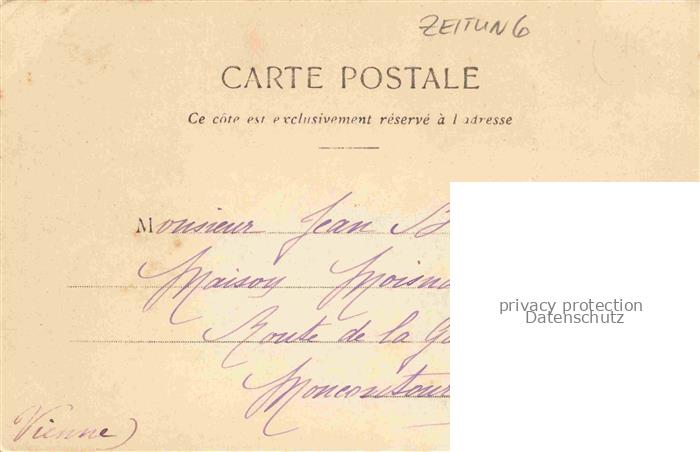 ZEITUNG
CARTE POSTALE
Ce côte est exclusivement réservé à l adresse
Monsieur Jean
Maison
Route de la
Moncontour
(Vienne)
privacy protection
Datenschutz